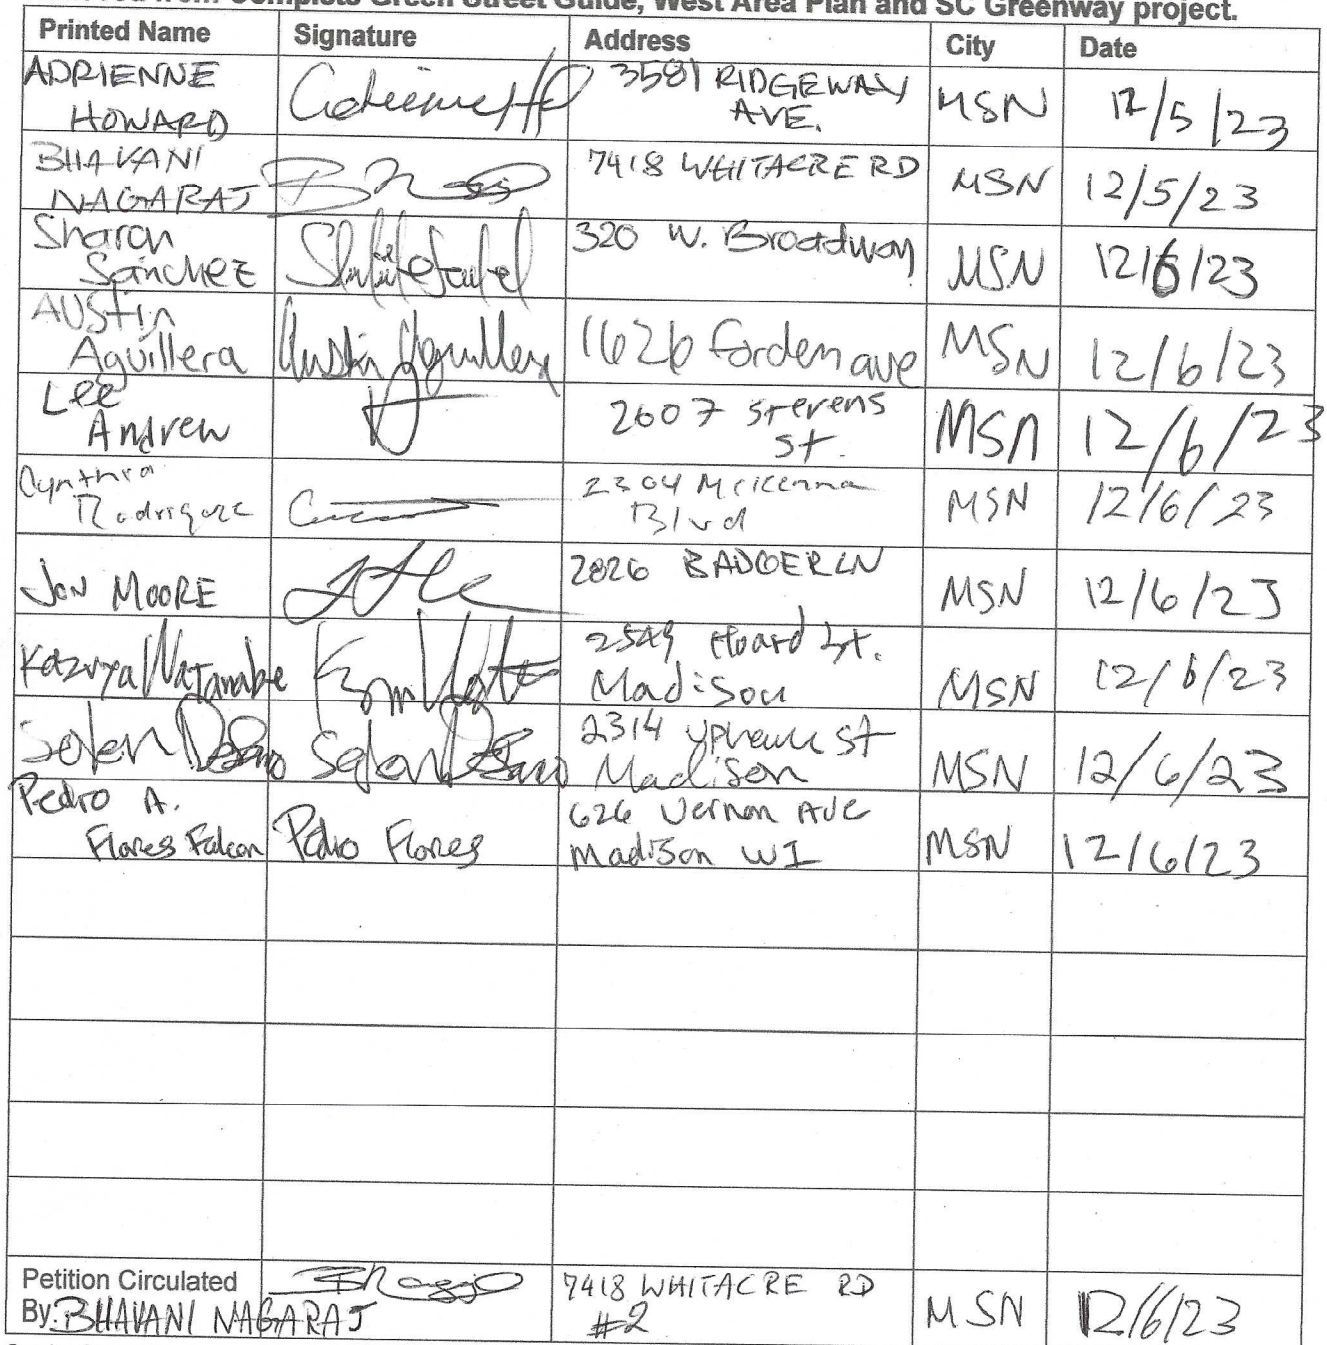 Complete Green Street Guide, West Area Plan and SC Greenway project.
Printed Name Signature Address City Date
ADRIENNE HOWARD 3581 RIDGEWAY AVE. MSN 12/5/23
BHAVANI NAGARAJ 7418 WHITACRE RD MSN 12/5/23
Sharon Sanchez 320 W. Broadway MSN 12/6/23
AUStin Aguillera Austin Aguillera 1626 fordem ave MSN 12/6/23
Lee Andrew 2607 Stevens St. MSN 12/6/23
Cynthia Rodriguez 2304 McKenna Blvd MSN 12/6/23
JON MOORE 2826 BADGER LN MSN 12/6/23
Kazuya Watanabe 2549 Hoard St. Madison MSN 12/6/23
2314 st Madison MSN 12/6/23
Pedro A. Flores Falcon Pedro Flores 626 Vernon AVE Madison WI MSN 12/6/23
Petition Circulated
By: BHAVANI NAGARAJ 7418 WHITACRE RD #2 MSN 12/6/23